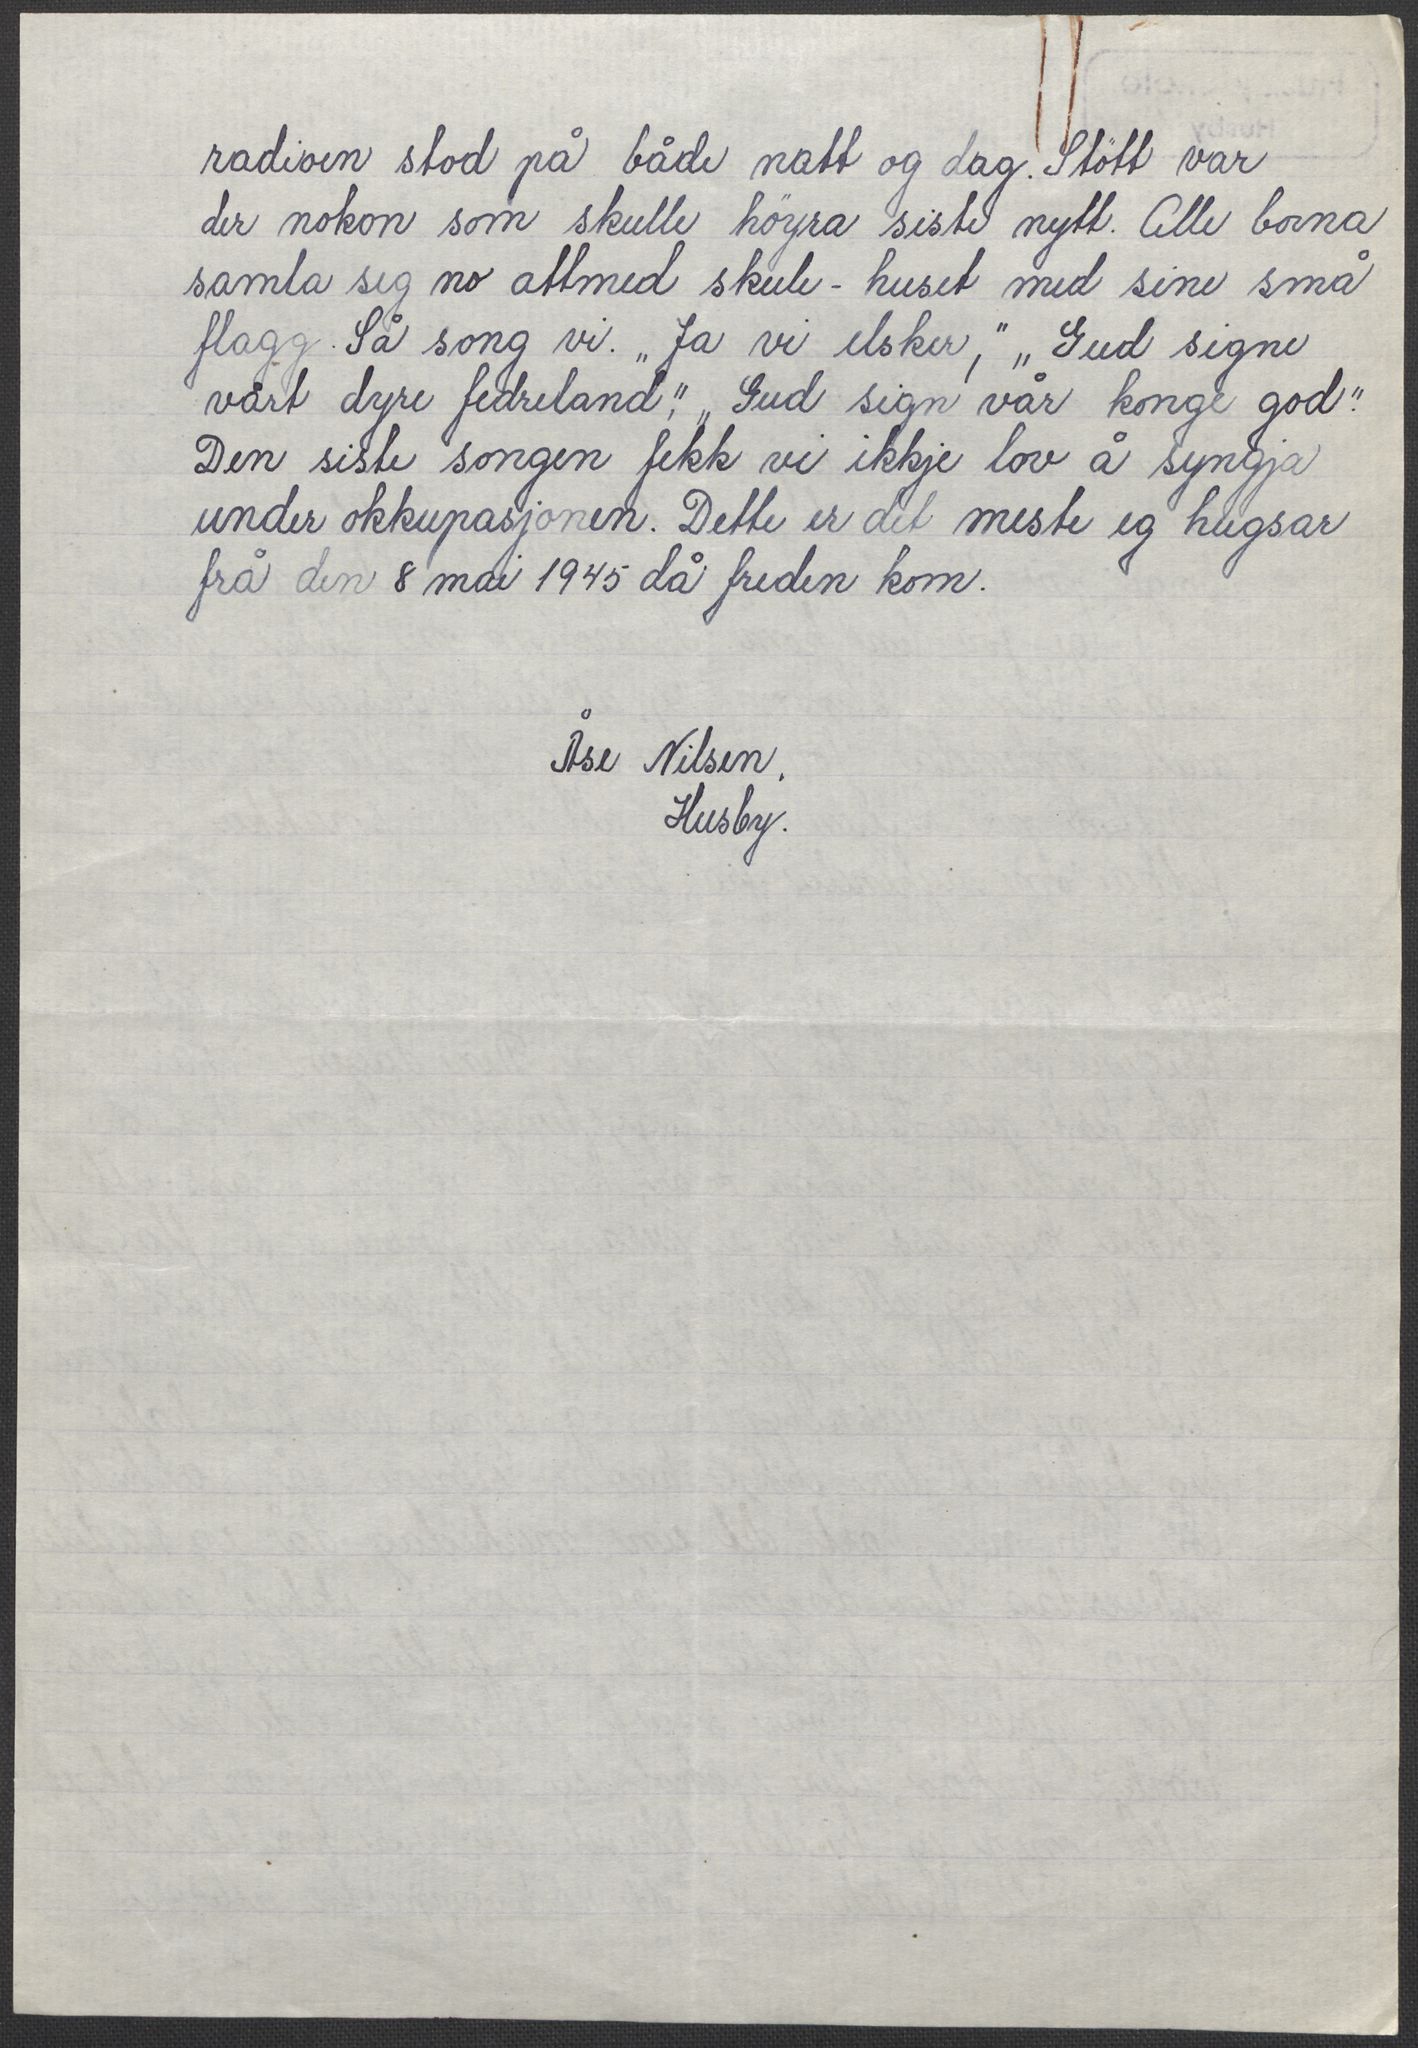 radioen stod på både natt og dag. Stött var
der nokon som skulle höyra siste nytt. Alle borna
samla seg no attmed skule - huset med sine små
flagg. Så song vi. „Ja vi elsker," „Gud signe
vårt dyre fedreland", „Gud sign vår konge god".
Den siste songen fekk vi ikkje lov å syngja
under okkupasjonen. Dette er det meste eg hugsar
frå den 8 mai 1945 då freden kom.
Åse Nilsen.
Husby.